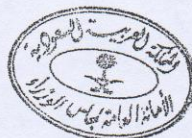 المملكة العربية السعودية
الأمانة العامة لمجلس الوزراء